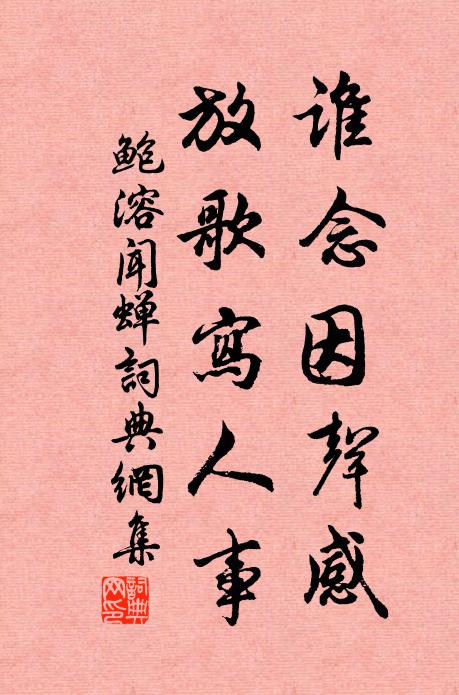 谁念因聲感
放歌寫人事
鲍溶闻蝉詞典網集
詞典
网印